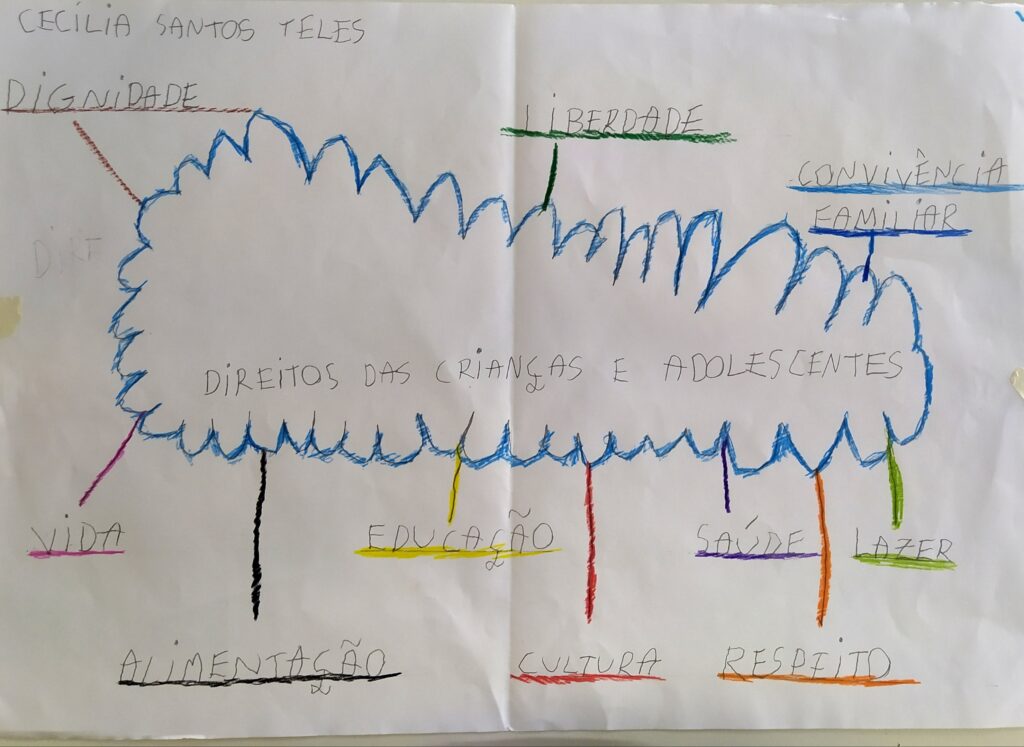 CECÍLIA SANTOS TELES
DIGNIDADE
LIBERDADE
CONVIVÊNCIA
FAMILIAR
DIRE
DIREITOS DAS CRIANÇAS E ADOLESCENTES
VIDA
EDUCAÇÃO
SAÚDE
LAZER
ALIMENTAÇÃO
CULTURA
RESPEITO